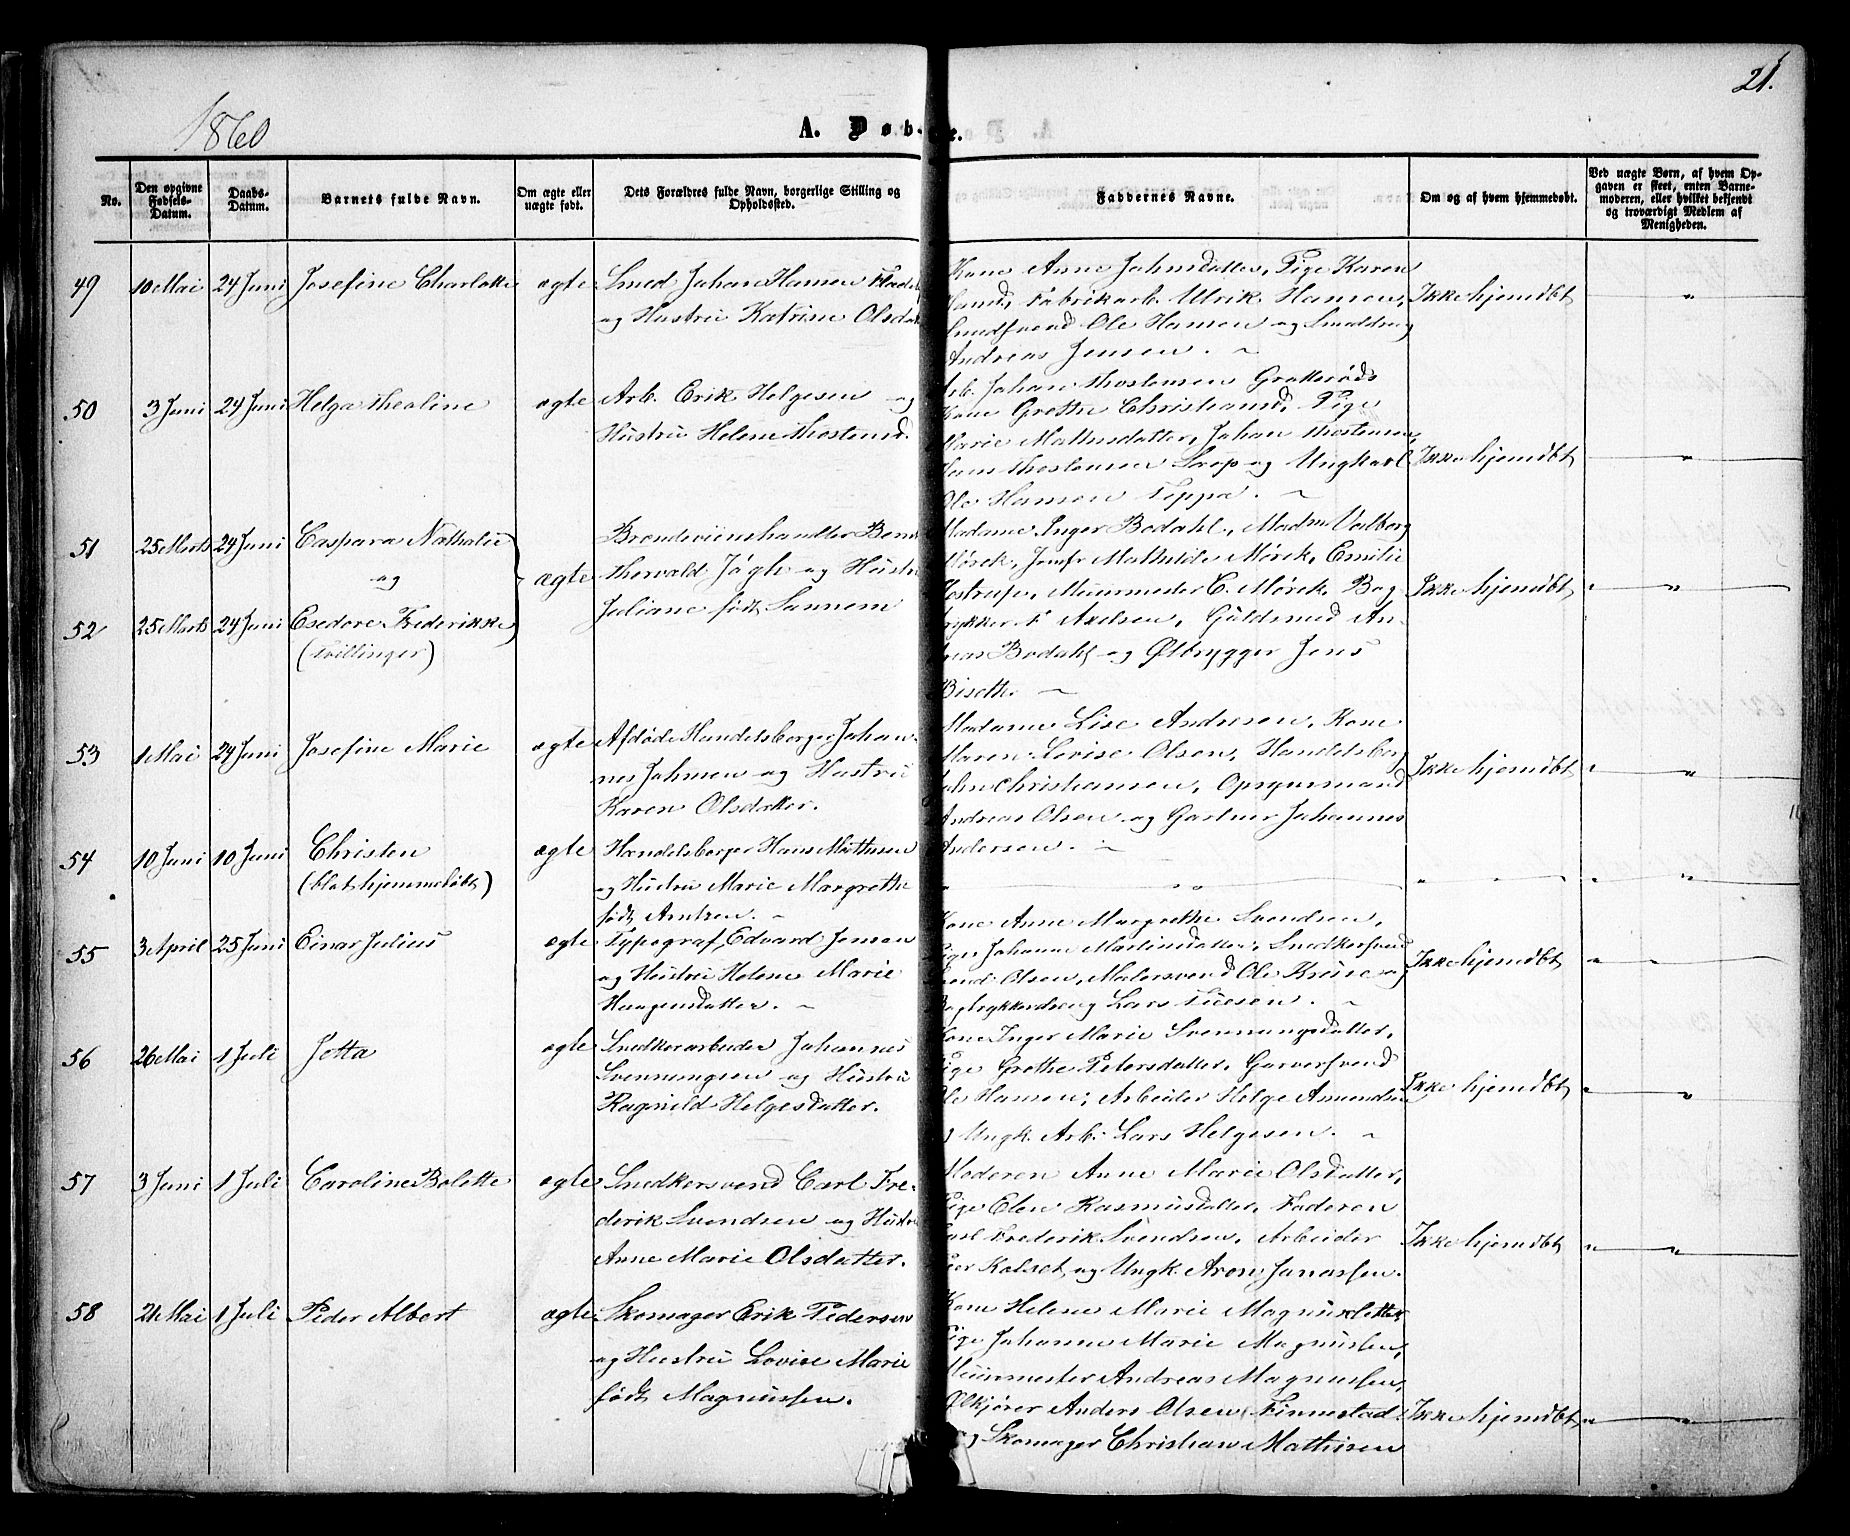 21.
1860
A. Døb- e.
No.
Den opgivne Fødsels-Datum.
Daabs-Datum.
Barnets fulde Navn.
Om ægte eller uægte født.
Dets Forældres fulde Navn, borgerlige Stilling og Opholdssted.
Faddernes Navne.
Om og af hvem hjemmedøbt.
Ved uægte Børn, af hvem Opgaven er skeet, enten Barnemoderen, eller hvilket bekjendt og troværdigt Medlem af Menigheden.
49 10 Mai 24 Juni Josefine Charlotte ægte Smed Johan Hansen
og Hustru Katrine Olsdat
Kone Anne Johnsdatter, Pige Karen
Hansd, Fabrikarb. Ulrik Hansen, Ikke hjemdbt "
Smedsvend Ole Hansen og Smeddreng
Andreas Jensen. ~
50 3 Juni 24 Juni Helga Theoline ægte Arb. Erik Helgesen og
Hustru Helene Thostensd.
Arb. Johan Thostensen Grotterøds
Kone Grethe Christiansd, Pige
Marie Mathisdatter, Johan Thostensen,
Hans Thostensen Sæp og Ungkarl Ikke hjemdbt "
Ole Hansen Teppa. ~
51 25 Marts 24 Juni Caspara Nathalie
og
52 25 Marts 24 Juni Esedore Frederikke
(tvillinger)
ægte Brændeviinshandler Bernt
Thorvald Jägh og Hustru
Juliane født Sannem
Madame Inger Bodahl, Madm Valborg
Mørck, Jomfr Mathilde Mørck, Emilie
Hostrup, Muurmester C. Mørck, Bog Ikke hjemdbt " "
trykker F Axelsen, Guldsmed An-
dreas Bodahl og Ølbrygger Jens
Bisetth ~
53 1 Mai 24 Juni Josefine Marie ægte Afdøde Handelsborger Johan-
nes Johnsen og Hustru
Karen Olsdatter.
Madame Lise Andresen, Kone
Maren Lovise Olsen, Handelsborg
John Christiansen, Opsynsmand Ikke hjemdbt " "
Andreas Olsen og Gartner Johannes
Andersen. ~
54 10 Juni 10 Juni Christen ægte Handelsborger Hans Mathisen
(blot hjemmedøbt) og Hustru Marie Margrethe
født Arntzen. ~
55 3 April 25 Juni Einar Julius ægte Typograf Edvard Jensen
og Hustru Helene Marie
Haagensdatter. ~
Kone Anne Margrethe Svendsen,
Pige Johanne Martinsdatter, Snedkersvend
Svend Olsen, Malersvend Ole Kruse og Ikke hjemdbt " "
Bogtrykkerdreng Lars Tuesen. ~
56 26 Mai 1 Juli Jetta ægte Snedkerarbeider Johannes
Svennungsen og Hustru
Ragnild Helgesdatter.
Kone Inger Marie Svennungsdatter,
Pige Grethe Petersdatter, Garversvend
Ole Hansen, Arbeider Helge Amundsen Ikke hjemdbt " "
og Ungk. Arb. Lars Helgesen. ~
57 3 Juni 1 Juli Caroline Bolette ægte Snedkersvend Carl Fre-
derik Svendsen og Hustru
Anne Marie Olsdatter.
Moderen Anne Marie Olsdatter,
Pige Elen Rasmusdatter, Faderen
Carl Frederik Svendsen, Arbeider Ikke hjemdbt " "
Peer Kolset, og Ungk. Aron Jonassen.
58 21 Mai 1 Juli Peder Albert ægte Skomager Erik Pedersen
og Hustru Lovise Marie
født Magnussen.
Kone Helene Marie Magnusdatter,
Pige Johanne Marie Magnussen,
Muurmester Andreas Magnussen,
Ølkjører Anders Olsen Finnestad Ikke hjemdbt " "
og Skomager Christian Mathisen